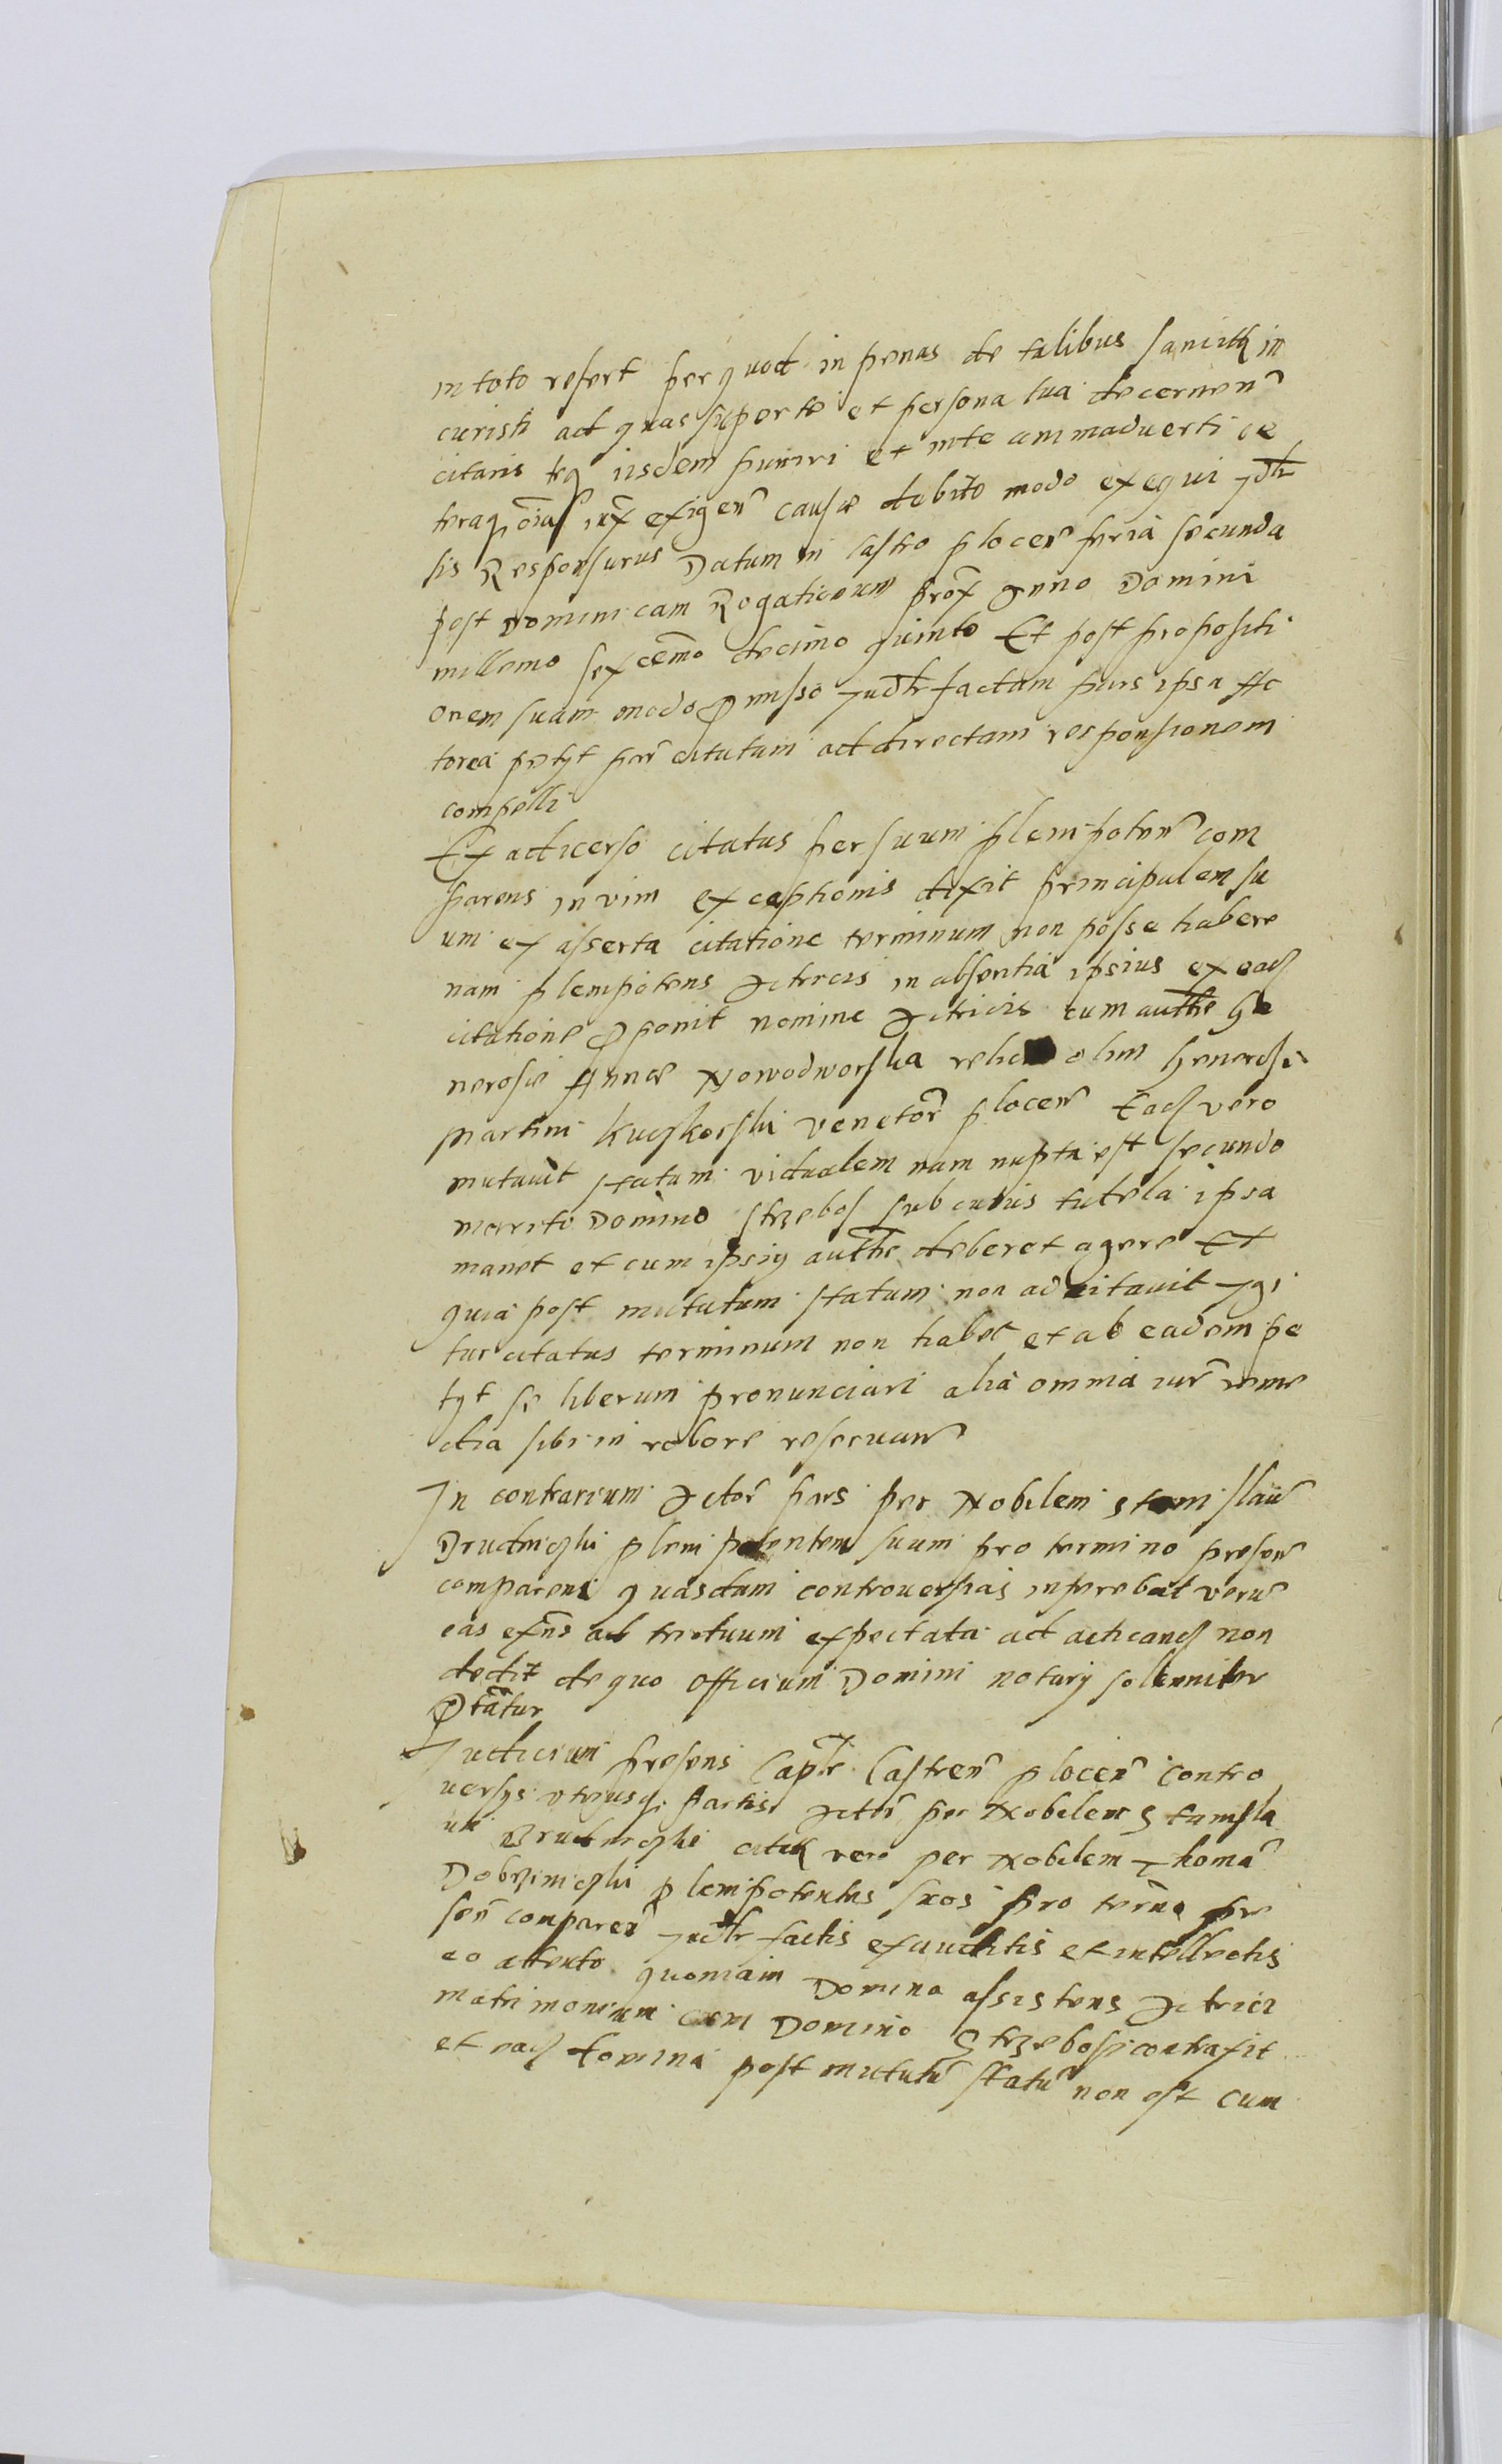 in toto refert per quod in penas de talibus sancitas in
curristi ad quas super te et persona tua decernen
citaris teq iisdem puniri et inte animadverti ce
teraq oia iux exigen causæ debito modo exequi Judr
sis Responsurus Datum in Castro plocen feria secunda
post Dominicam Rogationum prox Anno Domini
millemo sexcemo decimo quinto Et post propositi
onem suam modo pmisso Judr factam pars ipsa Ac
torea petyt par citatum ad directam responsionem
compelli
Ex adverso citatus per suum plenipoten com
parens in vim exceptionis dixit principalem su
um ex asserta citatione terminum non posse habere
nam plenipotens Actricis in absentia ipsius ex ead
citatione pponit nomine Actricis cum authte Ge
nerosæ Annæ Nowodworska olim Generosi
Martini Kuczkorski venator plocen Ead vero
mutavit statum vidualem nam nupta est secundo
marito Domino Strzebos sub cuius tutela ipsa
manet et cum ipsig authte deberet agere Et
quia post mutatum statum non adcitavit Igi
tur citatus terminum non habet et ab eadem pe
tyt se liberum pronunciari alia omnia iur reme
dia sibi in robore reservan
In contrarium Actor pars per Nobilem Stanislau
Drudniczki plenipotentem suum pro termino presen
comparens quasdam controversias inferebat veru
eas exns ad triduum expectata ad acticand non
dedit de quo Officium Domini notary solenniter
Ptatur
Judicium presens Caple Castren plocen contro
versys utriusq partis Actor per Nobilem Stanisla
um citati vero per Nobilem Thoma
Dobrzinczki plenipotentes suos pro termo pre
sen comparen Judr factis exauditis et intellectis
eo attento quoniam Domina assistens Actrici
matrimonium cum Domino Strzebosz contraxit
et ead Domina post mutatu statu non est cum